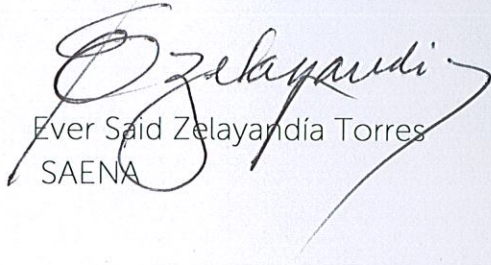 Ezelayandi
Ever Said Zelayandía Torres
SAENA